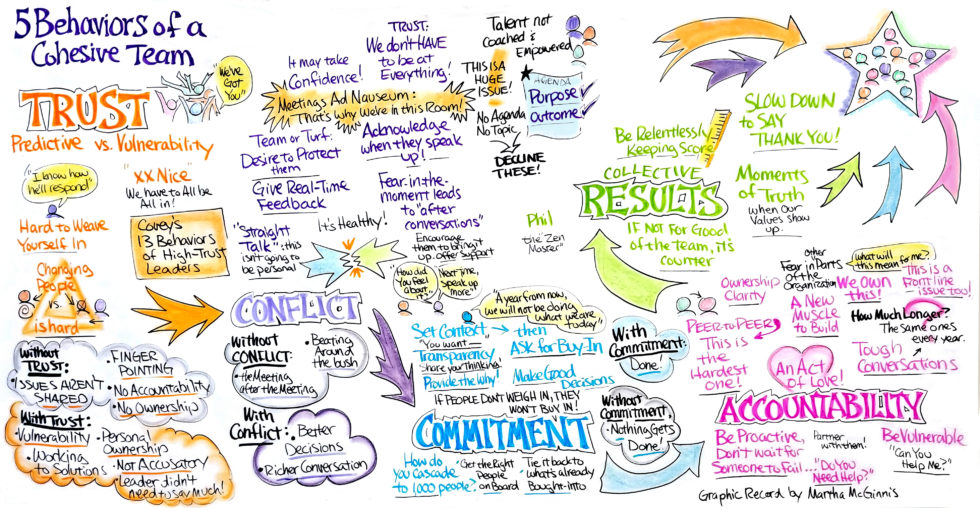 5 Behaviors of a
Cohesive Team
"We've
Got
You"
TRUST
Predictive vs. Vulnerability
"I know how
he'll respond"
Hard to Weave
Yourself In
XX Nice
We have to All be
All in!
Covey's
13 Behaviors
of High-Trust
Leaders
Changing
People
vs.
is hard
Without
TRUST:
• ISSUES AREN'T
SHARED
• FINGER
POINTING
• No Accountability
• No Ownership
With Trust:
• Vulnerability
• Working
to Solutions
• Personal
Ownership
• Not Accusatory
• Leader didn't
need to say much!
It may take
Confidence!
TRUST:
We don't HAVE
to be at
Everything!
Meetings Ad Nauseum:
That's why We're in this Room!
Team or Turf:
Desire to Protect
them
Give Real-Time
Feedback
Acknowledge
when they speak
up!
Fear-in-the-
moment leads
to "after
conversations"
"Straight
Talk": this
isn't going to
be personal
It's Healthy!
Encourage
them to bring it
up. Offer Support
"How did
You feel
about
it?"
Next time,
speak up
more"
CONFLICT
Without
CONFLICT:
• the Meeting
after the Meeting
• Beating
Around
the bush
With
Conflict:
• Better
Decisions
• Richer Conversation
Talent not
Coached is
Empowered
THIS IS A
HUGE
ISSUE!
No Agenda
No Topic
DECLINE
THESE!
AGENDA
Purpose
Outcome
"A year from now
we will not be doing
what we are
today"
Set Context
"You want—
Transparency
Share your Thinking!
Provide the Why!
then
ASK for Buy-In
Make Good
Decisions
IF PEOPLE DON'T WEIGH IN, THEY
WON'T BUY IN!
COMMITMENT
How do
You Cascade
to 1,000 people?
"Get the Right
People
on Board
Tie it back to
what's already
Bought-into
With
Commitment:
Done!
Without
Commitment,
• Nothing Gets
Done!
Be Relentlessly
Keeping Score
SLOW DOWN
to SAY
THANK YOU!
COLLECTIVE
RESULTS
IF Not For Good
of the team, it's
counter
Phil
the "Zen
Master"
Moments
of Truth
when Our
Values show
up.
Ownership
Clarity
other
Fear in Parts
of the
Organization
"What will
this mean for me?"
We own
this!
This is a
Front line
issue too!
A New
Muscle
to Build
How Much Longer?
The same ones
every year.
PEER to PEER
This is
the
Hardest
one!
An Act
of Love!
Tough
Conversations
ACCOUNTABILITY
Be Proactive,
Don't wait for
Someone to Fail...
Partner
with them!
"Do You
Need Help?"
Be Vulnerable
"Can You
Help Me?"
Graphic Record by Martha McGinnis